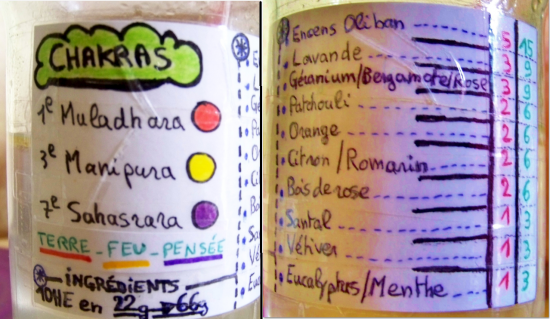 CHAKRAS
1e Muladhara
3e Manipura
7e Sahasrara
TERRE - FEU - PENSÉE
INGRÉDIENTS
10HE en 22g → 66g
Encens Oliban 5 15
Lavande 3 9
Géranium/Bergamote/Rose 3 9
Patchouli 2 6
Orange 2 6
Citron/Romarin 2 6
Bois de rose 2 6
Santal 1 3
Vétiver 1 3
Eucalyptus/Menthe 1 3